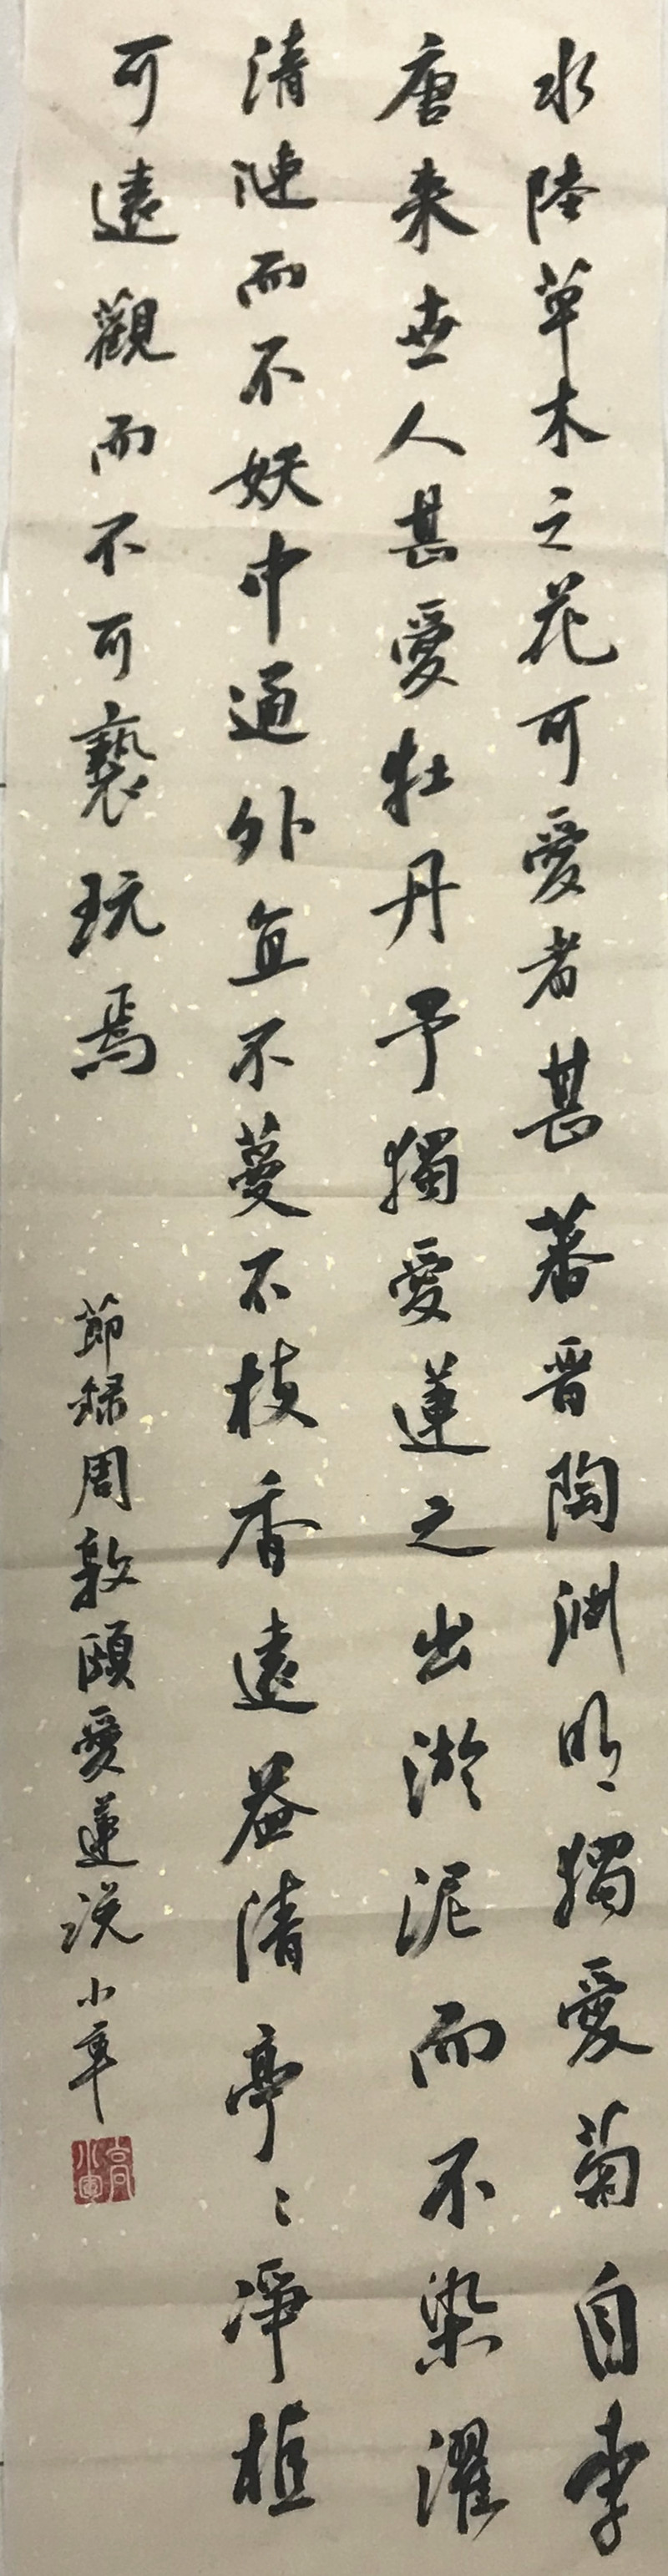 水陸草木之花可愛者甚蕃晋陶淵明獨愛菊自李
唐来世人甚愛牡丹予獨愛蓮之出淤泥而不染濯
清漣而不妖中通外直不蔓不枝香遠益清亭〻淨植
可遠觀而不可褻玩焉
節録周敦頤愛蓮説小軍